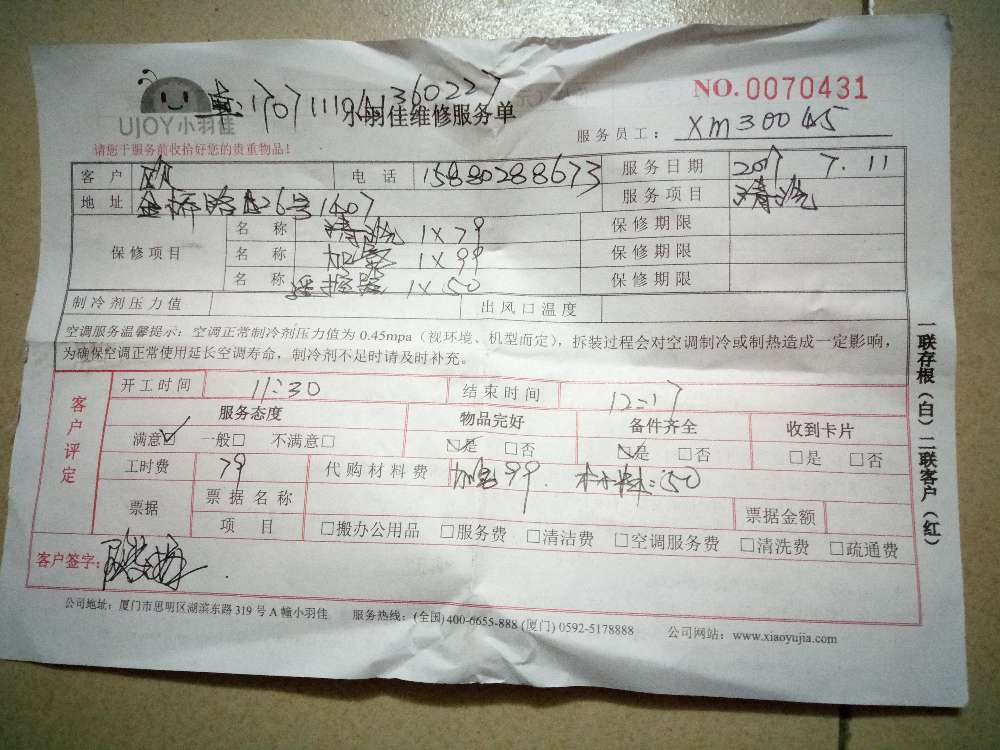 NO.0070431
单:170711104360227
UJOY小羽佳
小羽佳维修服务单
服务员工: XM30045
请您于服务前收拾好您的贵重物品!
客户 欧 电话 15880288673 服务日期 2017 7.11
地址 金桥路126号1407 服务项目 清洗
保修项目 名称 清洗 1×79 保修期限
名称 加氨 1×99 保修期限
名称 遥控器 1×50 保修期限
制冷剂压力值 出风口温度
空调服务温馨提示:空调正常制冷剂压力值为0.45mpa(视环境、机型而定),拆装过程会对空调制冷或制热造成一定影响,
为确保空调正常使用延长空调寿命,制冷剂不足时请及时补充。
一联存根(白)二联客户(红)
客户评定
开工时间 11:30 结束时间 12:17
服务态度 物品完好 备件齐全 收到卡片
满意☑ 一般□ 不满意□ ☑是 □否 ☑是 □否 □是 □否
工时费 79 代购材料费 加氨99. 材料:50
票据 票据名称 票据金额
项目 □搬办公用品 □服务费 □清洁费 □空调服务费 □清洗费 □疏通费
客户签字:
公司地址:厦门市思明区湖滨东路319号A幢小羽佳 服务热线:(全国)400-6655-888 (厦门) 0592-5178888 公司网站:www.xiaoyujia.com